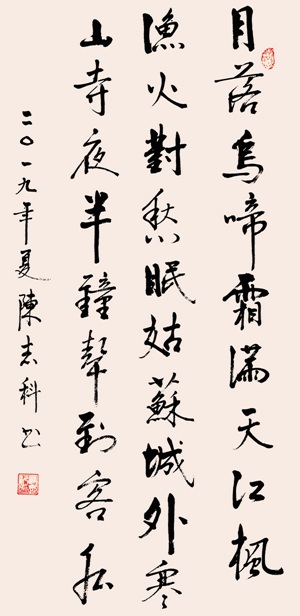 月落烏啼霜滿天江楓
漁火對愁眠姑蘇城外寒
山寺夜半鐘聲到客船
二〇一九年夏陳志科書